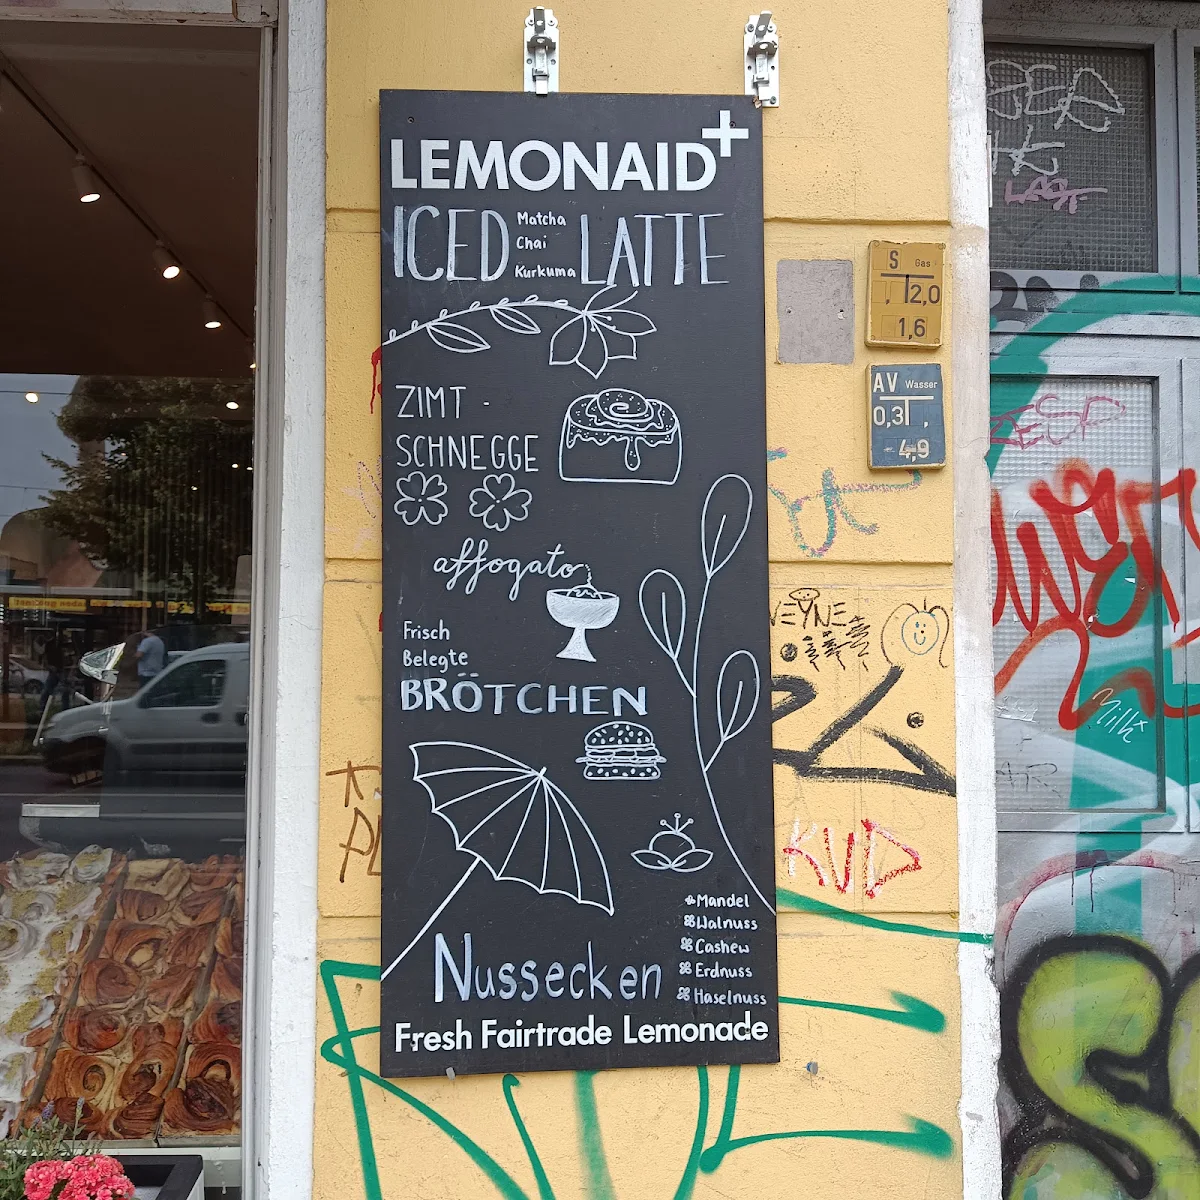 LEMONAID+
ICED Matcha Chai Kurkuma LATTE
ZIMT-
SCHNEGGE
affogato
Frisch
Belegte
BRÖTCHEN
Mandel
Walnuss
Cashew
Erdnuss
Haselnuss
Nussecken
Fresh Fairtrade Lemonade
S Gas
, 2,0
1,6
AV Wasser
0,3 ,
4,9
KUD